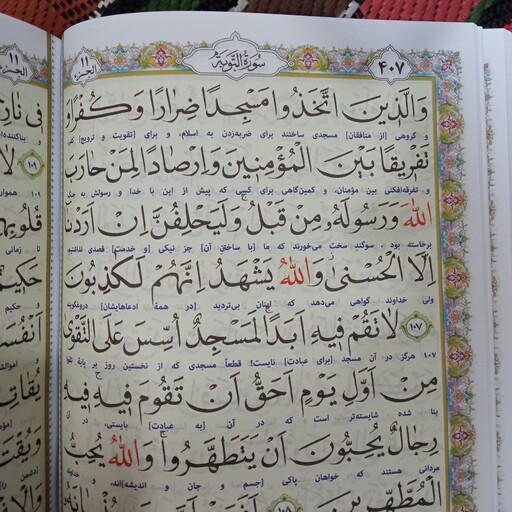 ۴۰۷
سورة التوبة
۱۱
الجزء
وَالَّذِينَ اتَّخَذُوا مَسْجِدًا ضِرَارًا وَكُفْرًا وَ
و گروهی [از منافقان] مسجدی ساختند برای ضربه‌زدن به اسلام، و برای [تقویت و ترویج] کفر
تَفْرِيقًا بَيْنَ الْمُؤْمِنِينَ وَإِرْصَادًا لِمَنْ حَارَبَ
و تفرقه‌افکنی بین مؤمنان، و کمین‌گاهی برای کسی که پیش از این با خدا و رسولش به جنگ
اللهَ وَرَسُولَهُ مِنْ قَبْلُ وَلَيَحْلِفُنَّ إِنْ أَرَدْنَا
برخاسته بود ، سوگند سخت می‌خورند که ما [با ساختن آن] جز نیکی [و خدمت] قصدی نداشتیم
إِلَّا الْحُسْنَىٰ وَاللهُ يَشْهَدُ إِنَّهُمْ لَكَاذِبُونَ
ولی خداوند گواهی می‌دهد که اینان بی‌تردید [در همهٔ ادعاهایشان] دروغگویند
۱۰۷ لَا تَقُمْ فِيهِ أَبَدًا لَمَسْجِدٌ أُسِّسَ عَلَى التَّقْوَىٰ
۱۰۷ هرگز در آن مسجد [برای عبادت] نایست! قطعاً مسجدی که از نخستین روز بر پایهٔ تقوا
مِنْ أَوَّلِ يَوْمٍ أَحَقُّ أَنْ تَقُومَ فِيهِ فِيهِ
بنا شده شایسته‌تر است که در آن [به عبادت] بایستی، در آن
رِجَالٌ يُحِبُّونَ أَنْ يَتَطَهَّرُوا وَاللهُ يُحِبُّ
مردانی هستند که خواهان پاکی [جسم و جان و اندیشه]اند، و خداوند
الْمُطَّهِّرِينَ ۱۰۸
۱۱
الجزء
فِي نَارِ
۱۰۹ لَا
۱۰۹ هموار
قُلُوبِهِمْ
تا زمانی
حَكِيمٌ
و حکیم
أَنْفُسَ
و اموالش
يُقَاتِ
وَيُقْتَ